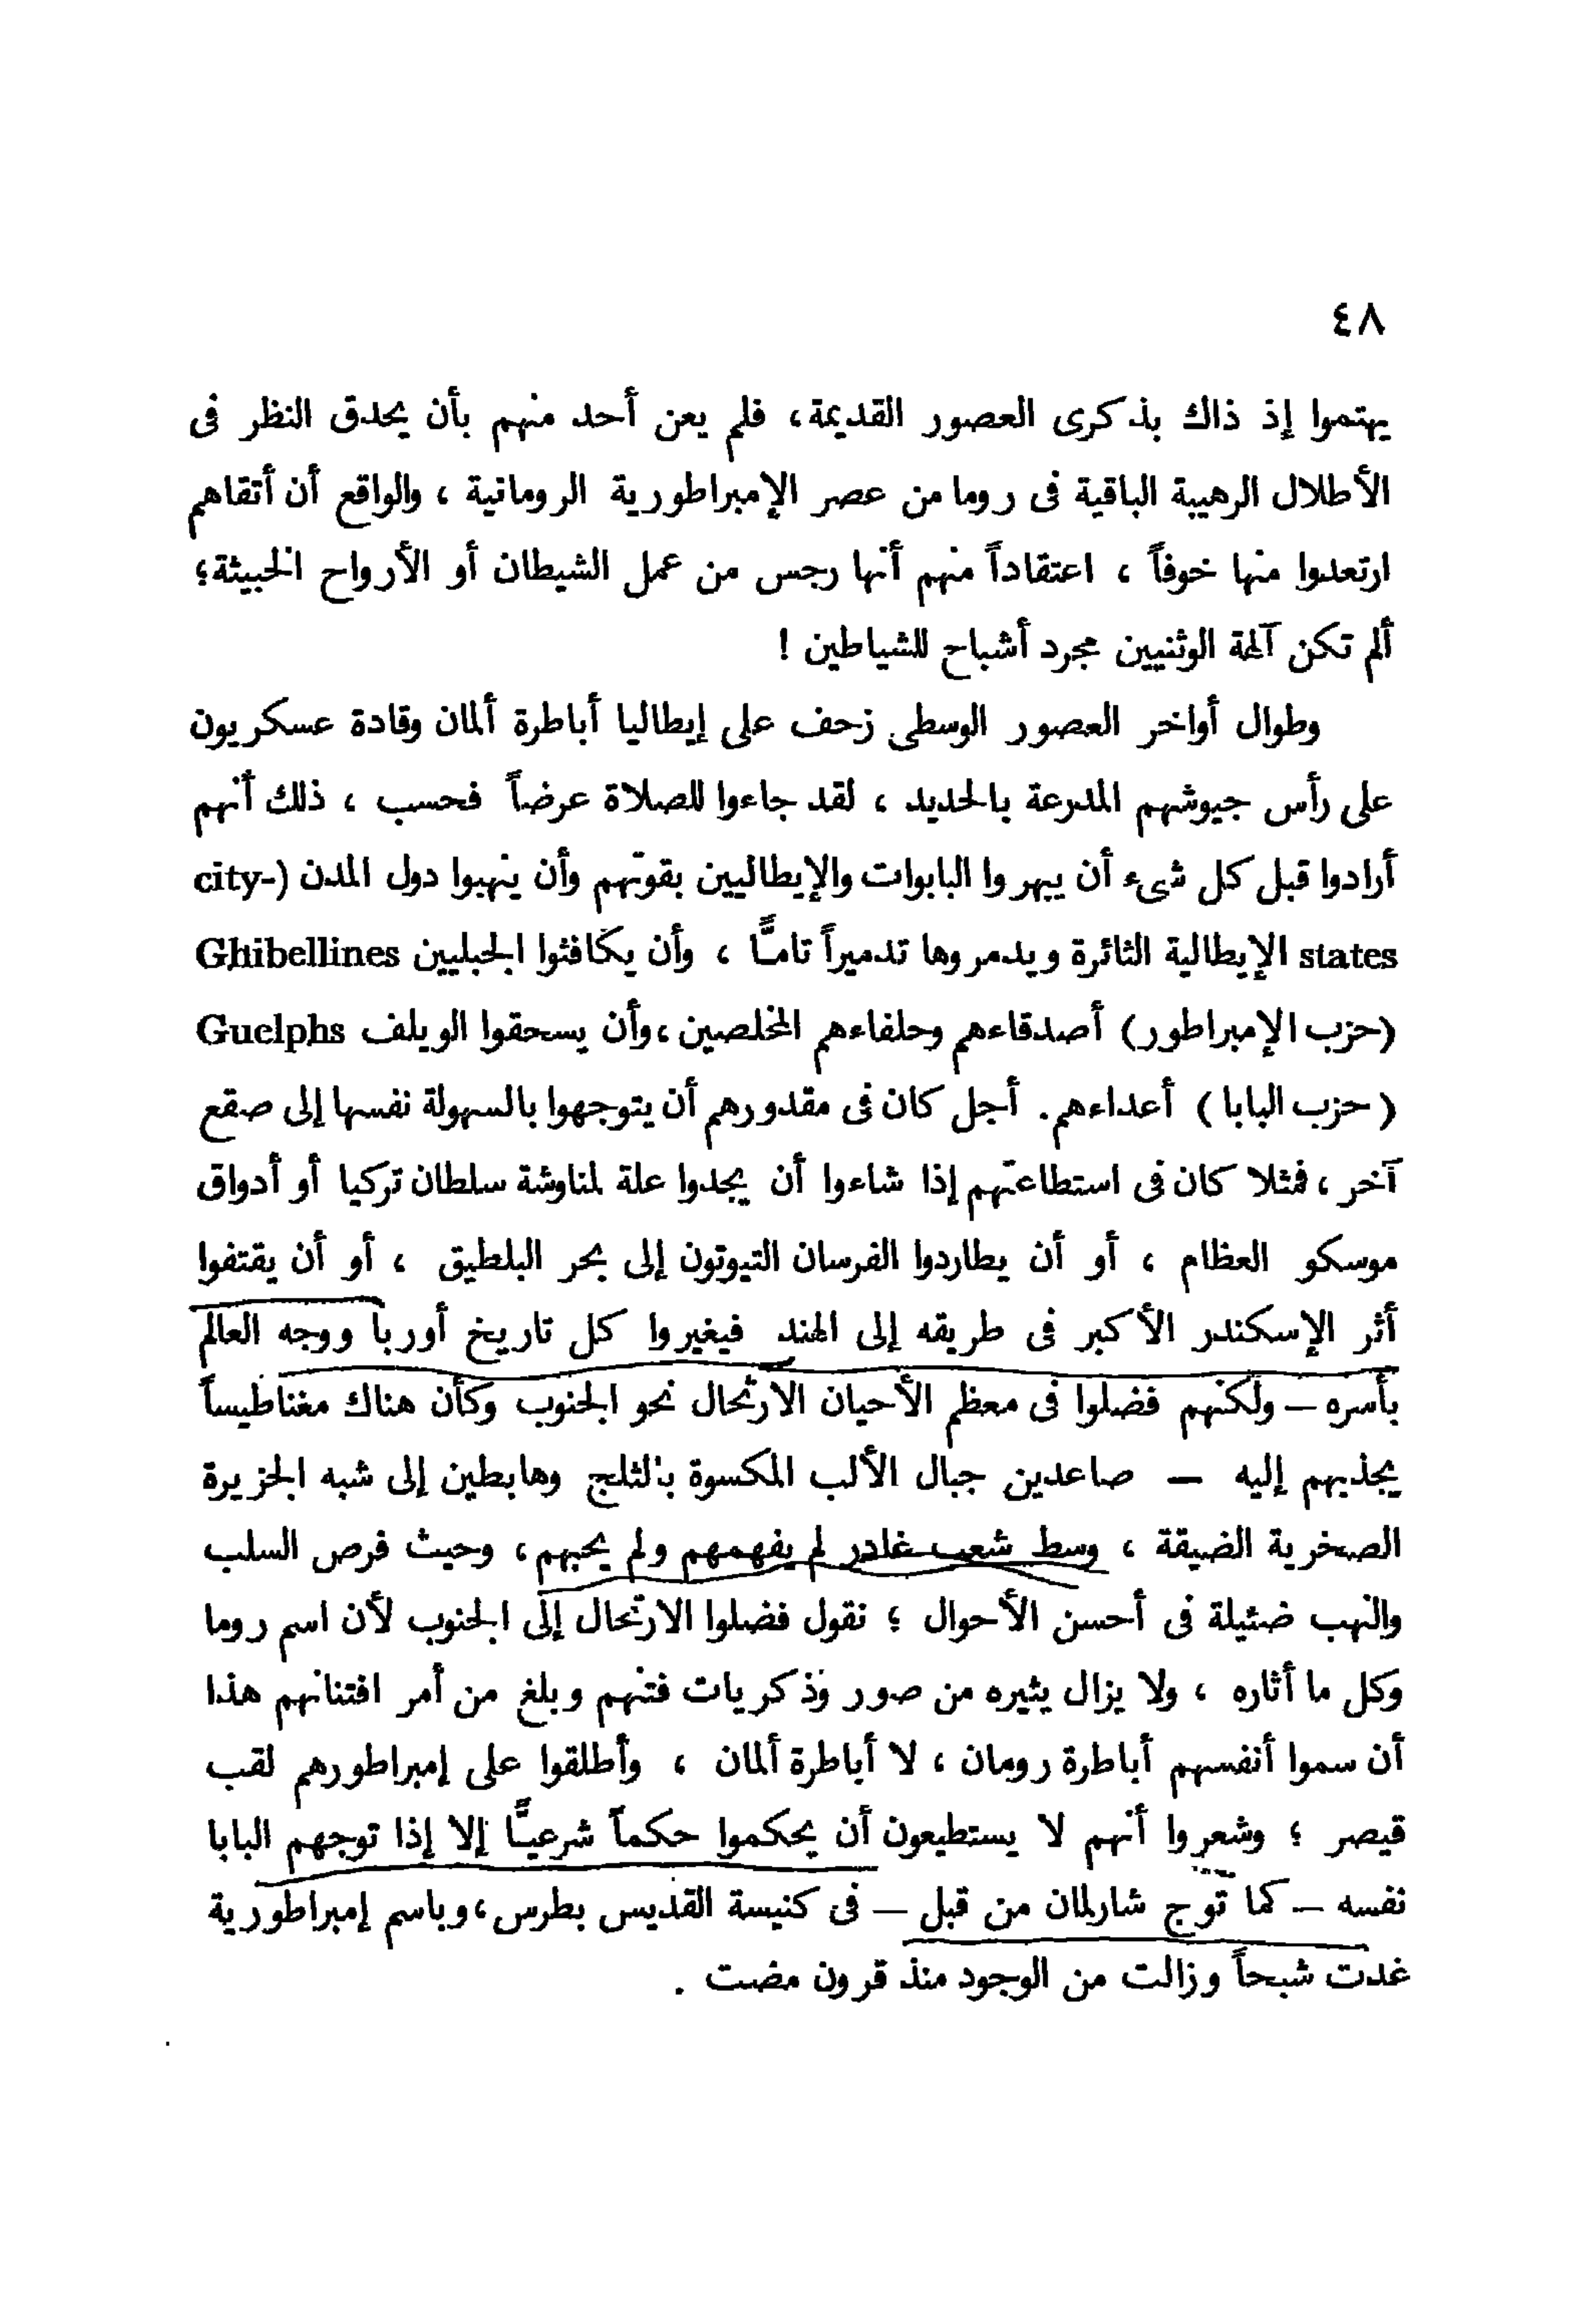 ٤٨
يهتموا إذ ذاك بذكرى العصور القديمة، فلم يعن أحد منهم بأن يحدق النظر فى
الأطلال الرهيبة الباقية فى روما من عصر الإمبراطورية الرومانية ، والواقع أن أتقاهم
ارتعدوا منها خوفاً ، اعتقاداً منهم أنها رجس من عمل الشيطان أو الأرواح الخبيثة؛
ألم تكن آلهة الوثنيين مجرد أشباح للشياطين !
وطوال أواخر العصور الوسطى زحف على إيطاليا أباطرة ألمان وقادة عسكريون
على رأس جيوشهم المدرعة بالحديد ، لقد جاءوا للصلاة عرضاً فحسب ، ذلك أنهم
أرادوا قبل كل شىء أن يبهروا البابوات والإيطاليين بقوتهم وأن ينهبوا دول المدن (city-
states الإيطالية الثائرة ويدمروها تدميراً تامًّا ، وأن يكافئوا الجبليين Ghibellines
(حزب الإمبراطور) أصدقاءهم وحلفاءهم المخلصين ،وأن يسحقوا الويلف Guelphs
( حزب البابا ) أعداءهم. أجل كان فى مقدورهم أن يتوجهوا بالسهولة نفسها إلى صقع
آخر ، فمثلا كان فى استطاعتهم إذا شاءوا أن يجدوا علة لمناوشة سلطان تركيا أو أدواق
موسكو العظام ، أو أن يطاردوا الفرسان التيوتون إلى بحر البلطيق ، أو أن يقتفوا
أثر الإسكندر الأكبر فى طريقه إلى الهند فيغيروا كل تاريخ أوربا ووجه العالم
بأسره – ولكنهم فضلوا فى معظم الأحيان الارتحال نحو الجنوب وكأن هناك مغناطيساً
يجذبهم إليه – صاعدين جبال الألب المكسوة بالثلج وهابطين إلى شبه الجزيرة
الصخرية الضيقة ، وسط شعب غادر لم يفهمهم ولم يحبهم، وحيث فرص السلب
والنهب ضئيلة فى أحسن الأحوال ؛ نقول فضلوا الارتحال إلى الجنوب لأن اسم روما
وكل ما أثاره ، ولا يزال يثيره من صور وذكريات فتنهم وبلغ من أمر افتنانهم هذا
أن سموا أنفسهم أباطرة رومان ، لا أباطرة ألمان ، وأطلقوا على إمبراطورهم لقب
قيصر ؛ وشعروا أنهم لا يستطيعون أن يحكموا حكماً شرعيًّا إلا إذا توجهم البابا
نفسه – كما تُوج شارلمان من قبل – فى كنيسة القديس بطرس ،وباسم إمبراطورية
غدت شبحاً وزالت من الوجود منذ قرون مضت .